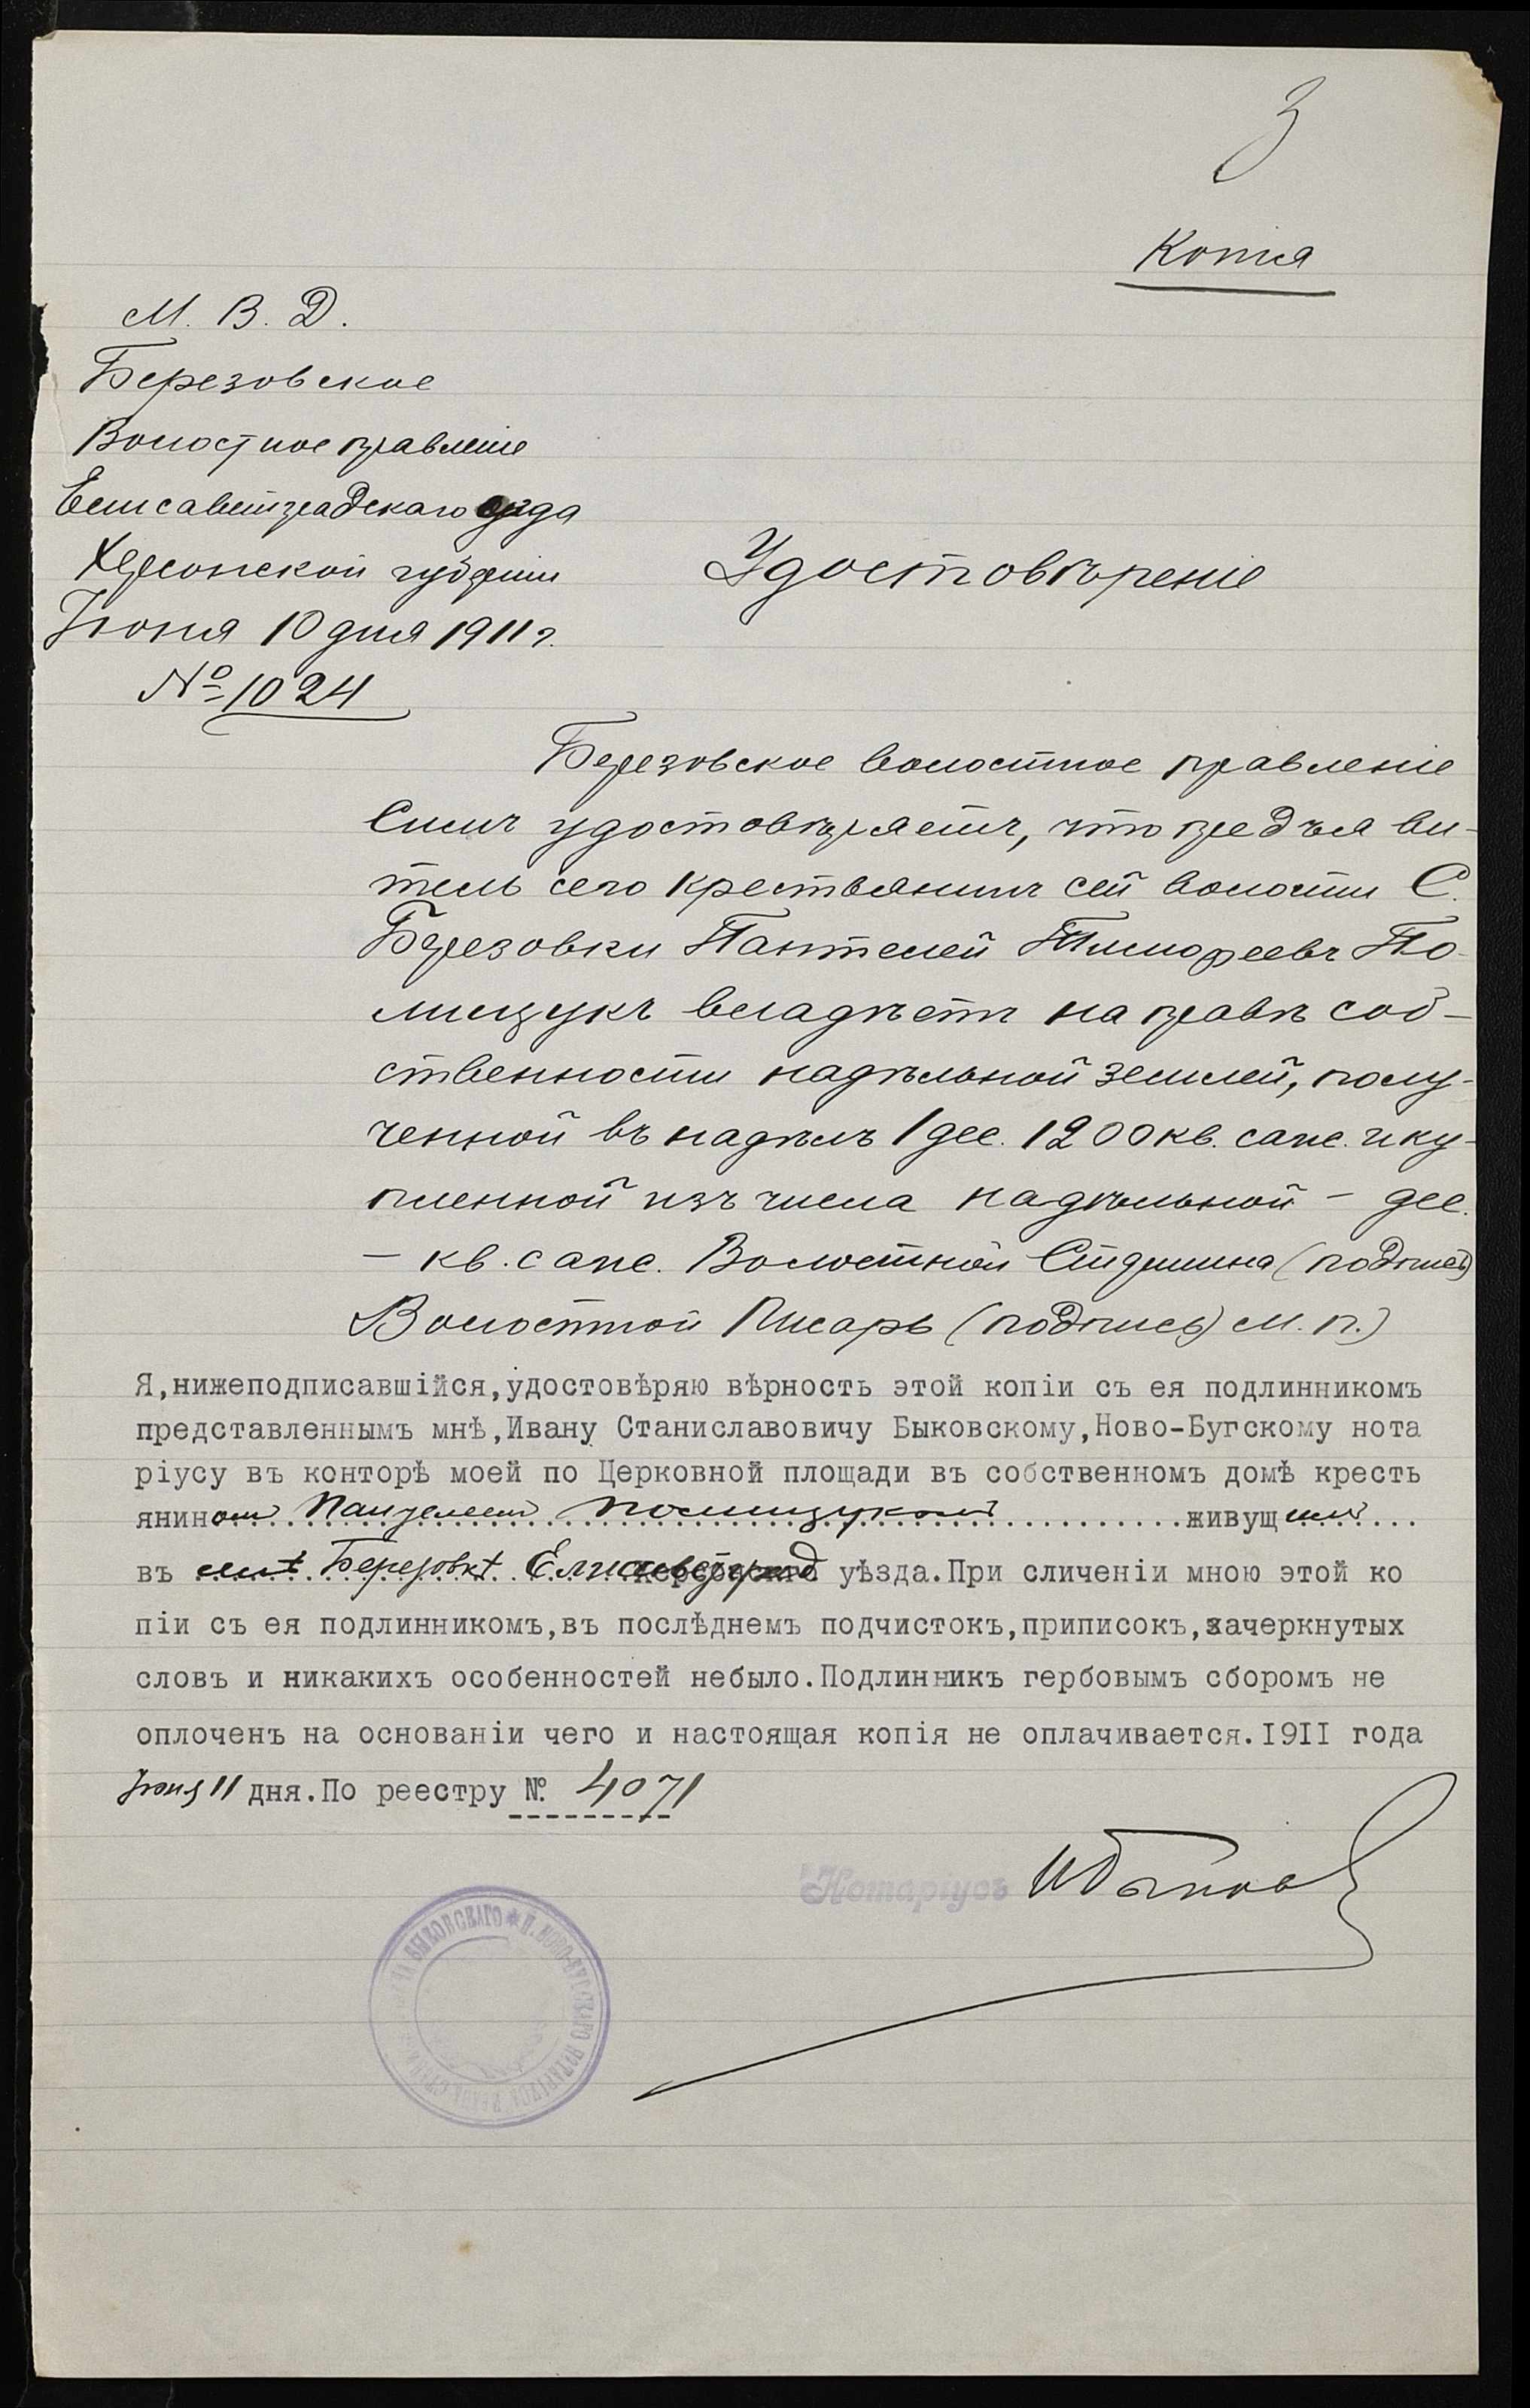 3
Копія
М. В. Д.
Березовское
Волостное правленіе
Елисаветградскаго уѣзда
Херсонской губерніи
Іюня 10 дня 1911 г.
№ 1024
Удостовѣреніе
Березовское волостное правленіе
Симъ удостовѣряетъ, что предъяви-
тель сего крестьянинъ сей волости С.
Березовки Пантелей Тимофеевъ По-
лищукъ владѣетъ на правѣ соб-
ственности надѣльной землей, полу-
ченной въ надѣлъ 1 дес. 1200 кв. саж. и ку-
пленной изъ числа надѣльной – дес.
– кв. саж. Волостной Старшина (подпись)
Волостной Писарь (подпись) М. п.)
Я,нижеподписавшійся,удостовѣряю вѣрность этой копіи съ ея подлинникомъ
представленнымъ мнѣ,Ивану Станиславовичу Быковскому,Ново-Бугскому нота
ріусу въ конторѣ моей по Церковной площади въ собственномъ домѣ кресть
янином Пантелеем Полищуком живущим
въ селѣ Березовкѣ Елисаветград уѣзда.При сличеніи мною этой ко
піи съ ея подлинникомъ,въ послѣднемъ подчистокъ,приписокъ,зачеркнутых
словъ и никакихъ особенностей небыло.Подлинникъ гербовымъ сборомъ не
оплоченъ на основаніи чего и настоящая копія не оплачивается.I9II года
Іюня 11 дня.По реестру №. 4071
Нотаріусъ ИБыков
БЫКОВСКАГО * Н. НОВО-БУГСКАГО НОТАРІУСА